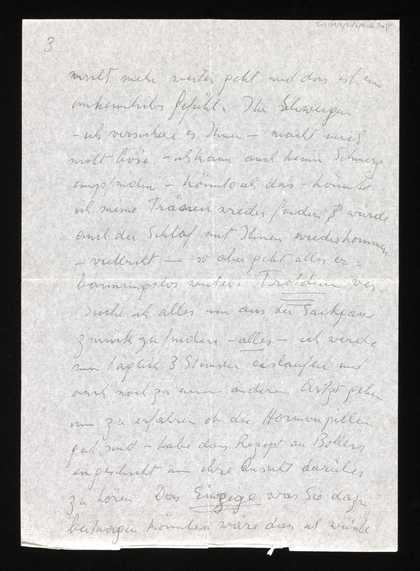 3
nicht mehr weiter geht und das ist ein
unheimliches Gefühl. Ihr Schweigen
- ich versichere es Ihnen - macht mich
nicht böse - ich kann auch keinen Schmerz
empfinden - könnte ich das - könnte
ich meine Tränen wieder finden würde
auch der Schlaf mit Ihnen wiederkommen
- vielleicht - so aber geht alles er-
barmungslos weiter. Trotzdem ver
suche ich alles um aus der Sackgasse
zurück zu finden - alles - ich werde
nun täglich 3 Stunden eislaufen und
auch noch zu einem anderen Arzt gehen
um zu erfahren ob die Hormonpillen
gut sind - habe das Rezept an
eingeschickt um ihre Ansicht darüber
zu hören. Das Einzige was Sie dazu
beitragen könnten wäre dass ich